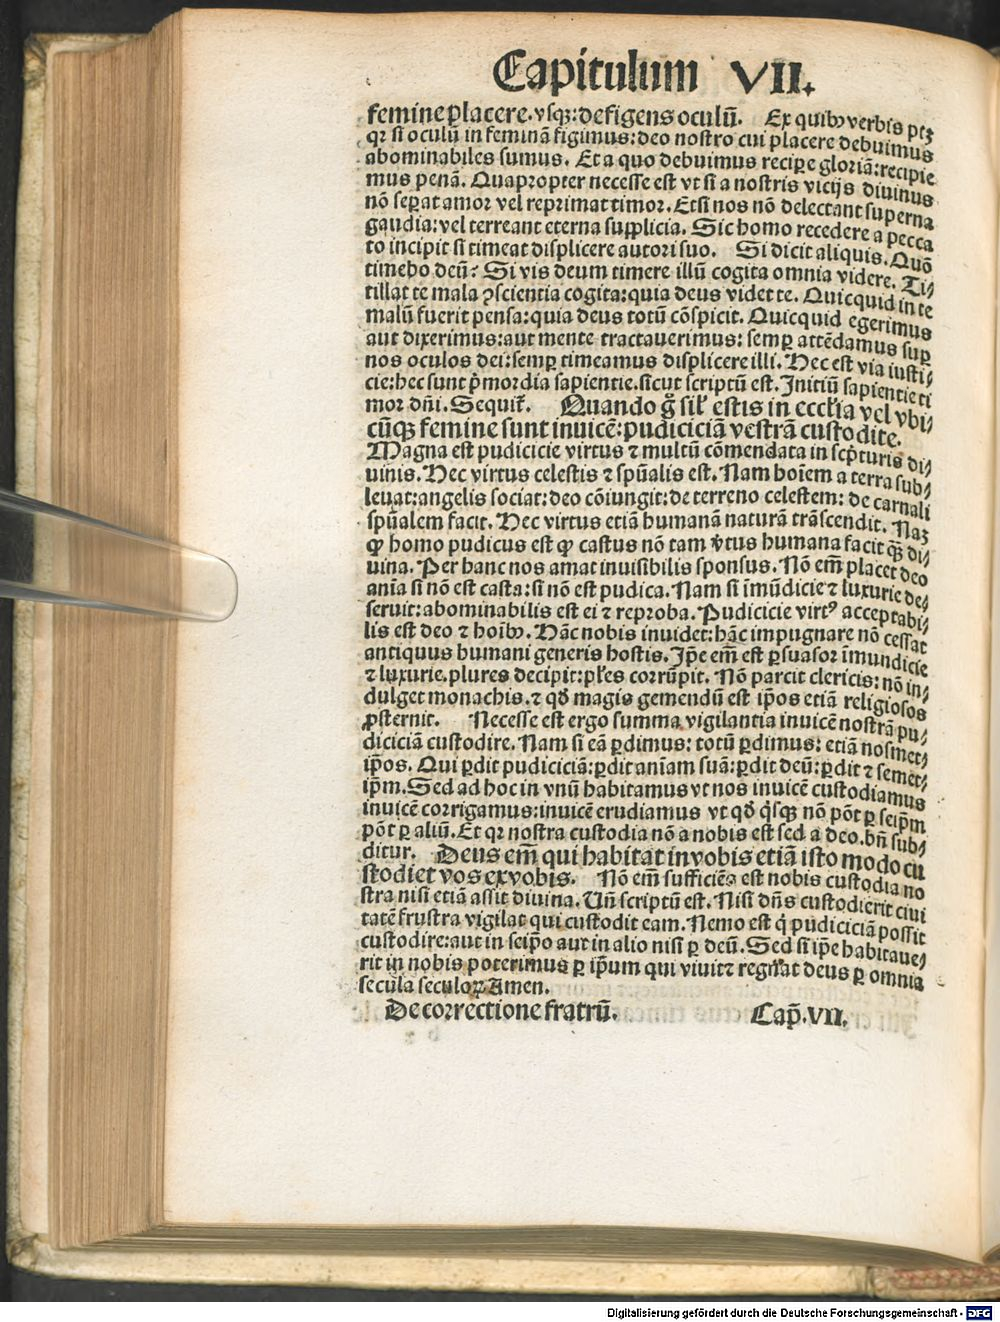 Capitulum VII.
femine ꝑlacere. vsqꝫ: defigens oculū. Ex quibꝰ verbis ptꝫ
qꝛ si oculū in feminā figimus: deo nostro cui placere debuimus
abominabiles sumus. Et a quo debuimus recipe gloriā: recipie
mus penā. Quapropter necesse est vt si a nostris vicijs diuinus
nō seꝑat amor vel reprimat timor. Etsi nos nō delectant superna
gaudia: vel terreant eterna supplicia. Sic homo recedere a pecca
to incipit si timeat displicere autori suo. Si dicit aliquis. Quō
timebo deū? Si vis deum timere illū cogita omnia videre. Ti⸗
tillat te mala ꝯscientia cogita: quia deus videt te. Quicquid in te
malū fuerit pensa: quia deus totū cōspicit. Quicquid egerimus
aut dixerimus: aut mente tractauerimus: semꝑ attēdamus suꝑ
nos oculos dei: semꝑ timeamus displicere illi. Hec est via iusti⸗
cie: hec sunt p̄mordia sapientie. sicut scriptū est. Initiū sapientie ti
mor dñi. Sequit᷑. Quando g̊ sil̉ estis in eccl̉ia vel vbi⸗
cūqꝫ femine sunt inuicē: pudiciciā vestrā custodite.
Magna est pudicicie virtus ⁊ multū cōmendata in scp̄turis di⸗
uinis. Hec virtus celestis ⁊ spūalis est. Nam hoīem a terra sub⸗
leuat: angelis sociat: deo cōiungit: de terreno celestem: de carnali
spūalem facit. Hec virtus etiā humanā naturā trāscendit. Naꝫ
ꝙ homo pudicus est ꝙ castus nō tam v̉tus humana facit q̄ꝫ di⸗
uina. Per hanc nos amat inuisibilis sponsus. Nō em̄ placet deo
anīa si nō est casta: si nō est pudica. Nam si īmūdicie ⁊ luxurie de⸗
seruit: abominabilis est ei ⁊ reproba. Pudicicie virtꝰ acceptabi⸗
lis est deo ⁊ hoībꝰ. Hāc nobis inuidet: hāc impugnare nō cessat
antiquus humani generis hostis. Ip̄e em̄ est ꝑsuasor īmundicie
⁊ luxurie. plures decipit: pl̉es corrūpit. Nō parcit clericis: nō in⸗
dulget monachis. ⁊ qđ magis gemendū est ip̄os etiā religiosos
ꝓsternit. Necesse est ergo summa vigilantia inuicē nostrā pu⸗
diciciā custodire. Nam si eā ꝑdimus: totū ꝑdimus: etiā nosmet⸗
ip̄os. Qui ꝑdit pudiciciā: ꝑdit anīam suā: ꝑdit deū: ꝑdit ⁊ semet⸗
ip̄m. Sed ad hoc in vnū habitamus vt nos inuicē custodiamus
inuicē corrigamus: inuicē erudiamus vt qđ q̉sqꝫ nō pōt ꝑ seip̄m
pōt ꝑ aliū. Et qꝛ nostra custodia nō a nobis est sed a deo. bn̄ sub⸗
ditur. Deus em̄ qui habitat in vobis etiā isto modo cu
stodiet vos ex vobis. Nō em̄ sufficiēs est nobis custodia no
stra nisi etiā assit diuina. Un̄ scriptū est. Nisi dn̄s custodierit ciui
tatē frustra vigilat qui custodit eam. Nemo est q̉ pudiciciā possit
custodire: aut in seip̄o aut in alio nisi ꝑ deū. Sed si ip̄e habitaue⸗
rit in nobis poterimus ꝑ ip̄um qui viuit ⁊ regnat deus ꝑ omnia
secula seculoꝝ Amen.
De correctione fratrū. Cap̄. VII.
Digitalisierung gefördert durch die Deutsche Forschungsgemeinschaft - DFG